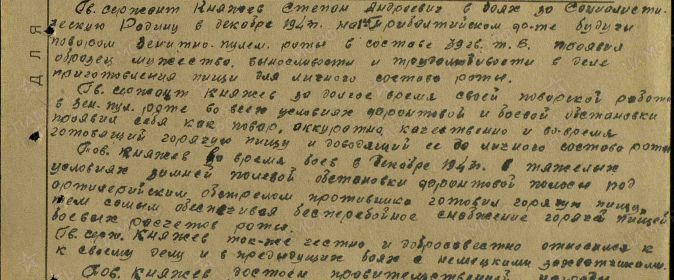 Гв. сержант Княжев Степан Андреевич в боях за Социалисти-
ческую Родину в декабре 194г. на 1 Прибалтийском фр-те будучи
поваром Зенитно-пулем. роты в составе 39 гв. т. Б. проявил
образец мужества, выносливости и трудолюбивости в деле
приготовления пищи для личного состава роты.
Гв. сержант Княжев за долгое время своей поварской работы
в Зен. пул. роте во всех условиях фронтовой и боевой обстановки
проявил себя как повар, аккуратно, качественно и во-время
готовящий горячую пищу и доводящий ее до личного состава роты
Тов. Княжев во время боев в декабре 194г. в тяжелых
условиях зимней полевой обстановки фронтовой полосы под
артилерийским обстрелом противника готовил горячую пищу,
тем самым обеспечивая бесперебойное снабжение горячей пищей
боевых расчетов роты.
Гв. серж. Княжев так-же честно и добросовестно относился к
к своему делу и в предидущих боях с немецкими захватчиками.
Тов. Княжев достоен правительственной награды
ДЛЯ